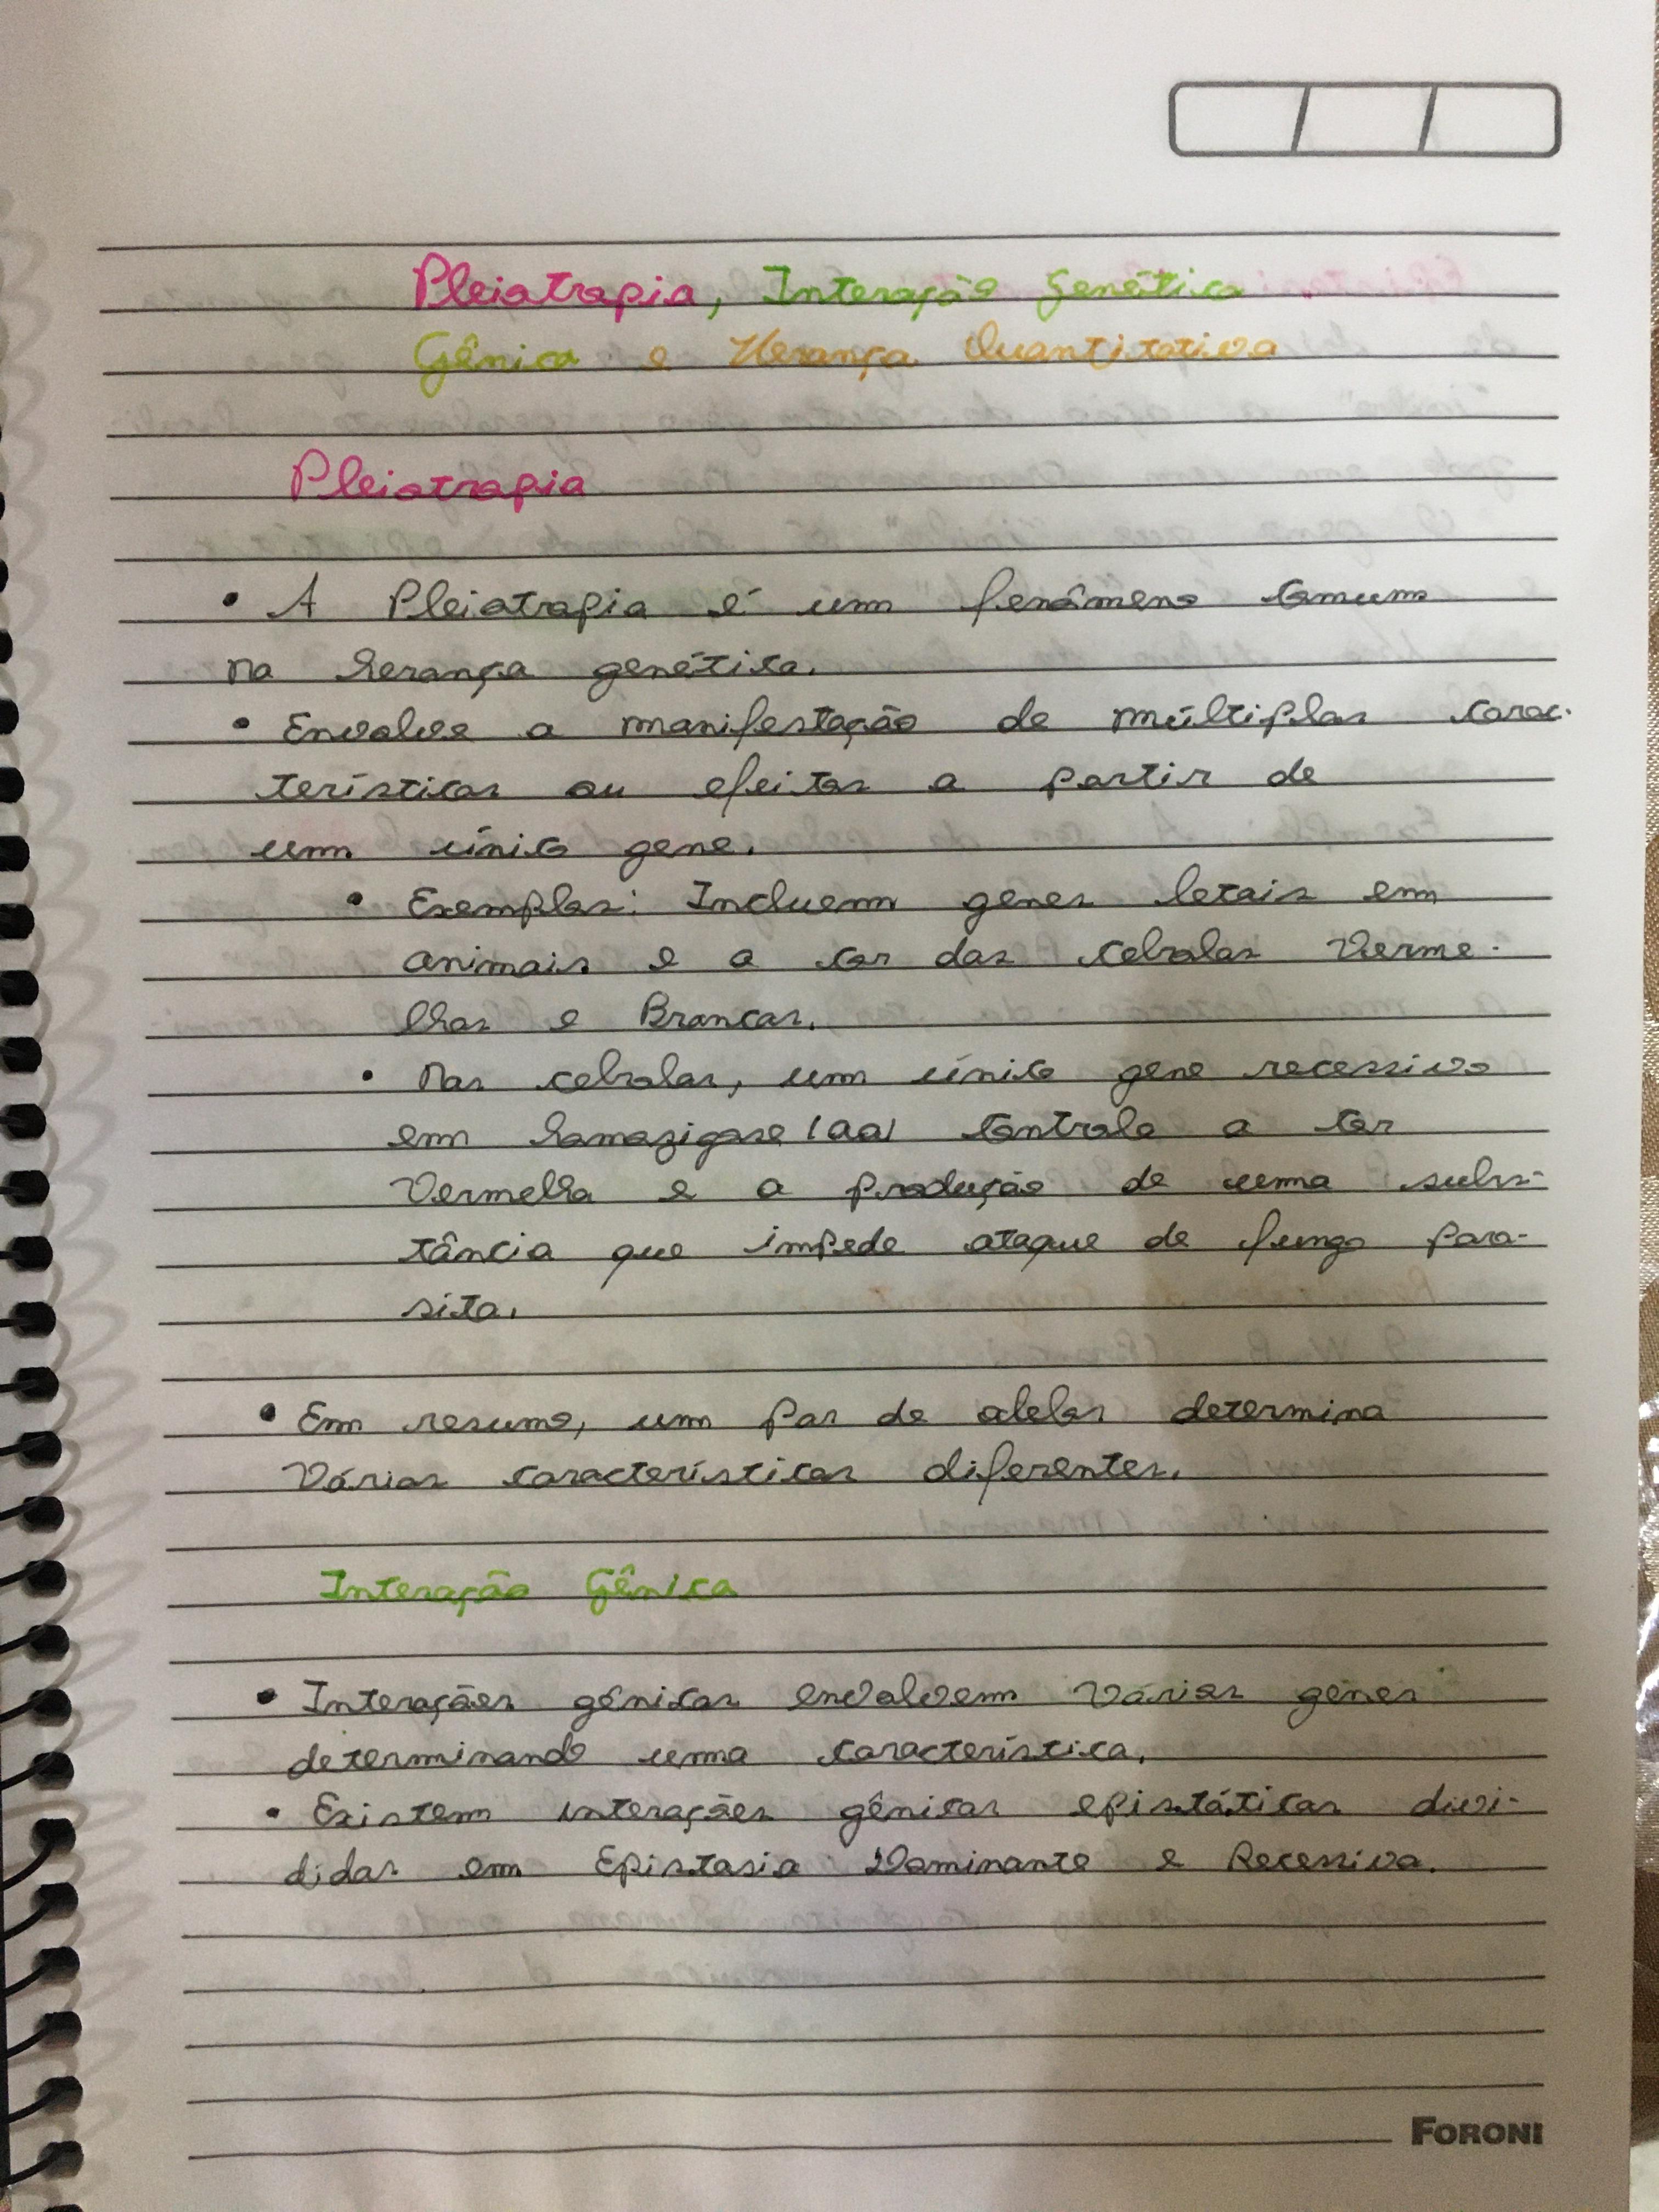 Pleiotropia, Interação Genética
Gênica e Herança Quantitativa
Pleiotropia
• A Pleiotropia é um fenômeno comum
na herança genética.
• Envolve a manifestação de múltiplas carac-
terísticas ou efeitos a partir de
um único gene.
• Exemplos: Incluem genes letais em
animais e a cor das cebolas verme-
lhas e Brancas.
• Nas cebolas, um único gene recessivo
em homozigose (aa) controla a cor
vermelha e a produção de uma subs-
tância que impede ataque de fungo para-
sita.
• Em resumo, um par de alelos determina
várias características diferentes.
Interação Gênica
• Interações gênicas envolvem vários genes
determinando uma característica.
• Existem interações gênicas epistáticas divi-
didas em Epistasia Dominante e Recessiva.
FORONI